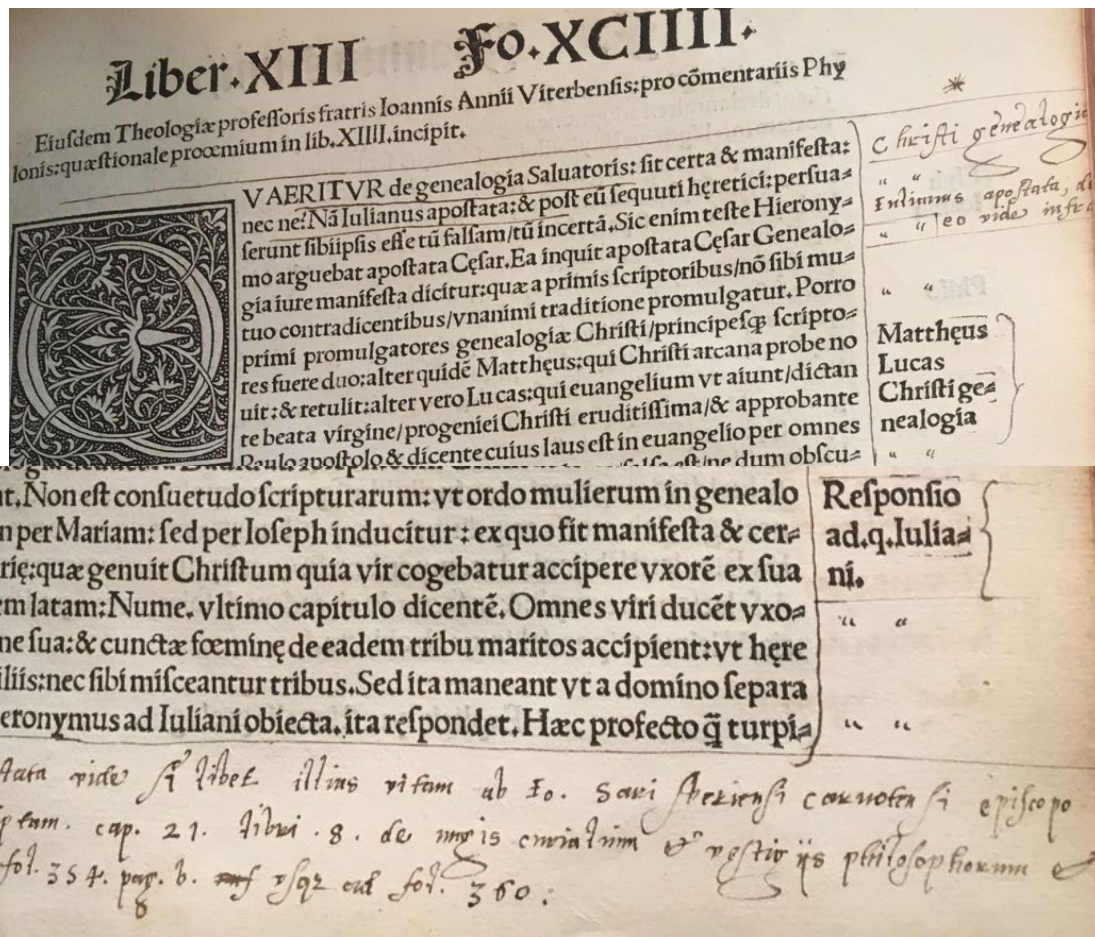 Liber.XIII Fo.XCIIII.
Eiuſdem Theologiæ profeſſoris fratris Ioannis Annii Viterbenſis: pro cōmentariis Phy
lonis: quæſtionale proœmium in lib.XIIII.incipit.
VAERITVR de genealogia Saluatoris: ſit certa & manifeſta:
nec ne? Nā Iulianus apoſtata: & poſt eū ſequuti hęretici: perſua=
ſerunt ſibiipſis eſſe tū falſam/tū incertā. Sic enim teſte Hierony=
mo arguebat apoſtata Cęſar. Ea inquit apoſtata Cęſar Genealo=
gia iure manifeſta dicitur: quæ a primis ſcriptoribus/nō ſibi mu=
tuo contradicentibus/vnanimi traditione promulgatur. Porro
primi promulgatores genealogiæ Chriſti/principeſq; ſcripto=
res fuere duo: alter quidē Matthęus: qui Chriſti arcana probe no
uit: & retulit: alter vero Lucas: qui euangelium vt aiunt/dictan
te beata virgine/progeniei Chriſti eruditiſſima/& approbante
Paulo apoſtolo & dicente cuius laus eſt in euangelio per omnes
falſa eſt/ne dum obſcu=
Chriſti genealogi
" "
Iulianus apoſtata, d
" " eo vide infra
" "
Matthęus
Lucas
Chriſti ge=
nealogia
" "
t. Non eſt conſuetudo ſcripturarum: vt ordo mulierum in genealo
n per Mariam: ſed per Ioſeph inducitur: ex quo fit manifeſta & cer=
rię: quæ genuit Chriſtum quia vir cogebatur accipere vxorē ex ſua
em latam: Nume. vltimo capitulo dicentē. Omnes viri ducēt vxo=
ne ſua: & cunctæ fœminę de eadem tribu maritos accipient: vt hęre
iliis: nec ſibi miſceantur tribus. Sed ita maneant vt a domino ſepara
eronymus ad Iuliani obiecta, ita reſpondet. Hæc profecto q̄ turpi=
Reſponſio
ad.q.Iulia=
ni.
" "
" "
ſtata vide ſi libet illius vitam ab Io. Sariſberienſi carnotenſi epiſcopo
ptam. cap. 21. libri .8. de nugis curialium & veſtigiis philoſophorum &
fol. 354. pag. b. vſqz ad fol. 360.